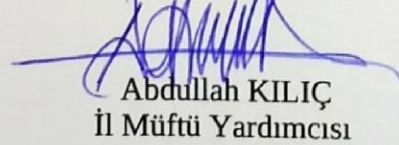 Abdullah KILIÇ
İl Müftü Yardımcısı